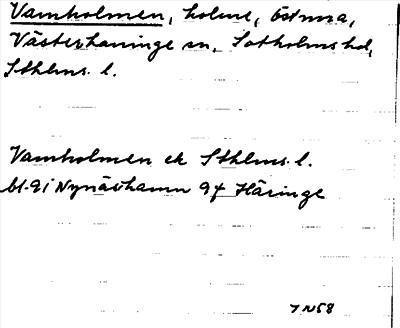 Vamholmen, holme, östnra,
Västerhaninge sn, Sotholms hd,
Sthlms. l.
Vamholmen ek Sthlms. l.
bl. 91 Nynäshamn 94 Häringe
7 N 58